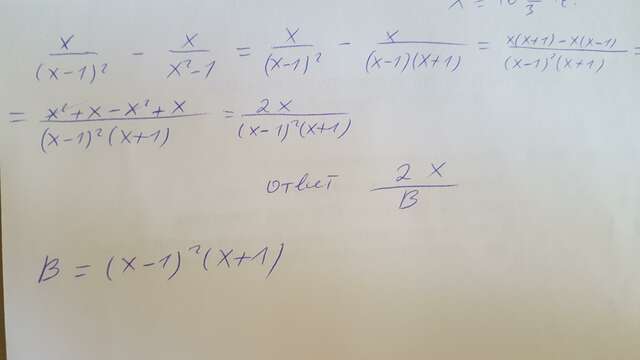 x = 10 2/3 г.
x/(x-1)² - x/x²-1 = x/(x-1)² - x/(x-1)(x+1) = x(x+1)-x(x-1)/(x-1)²(x+1) =
= x²+x-x²+x/(x-1)²(x+1) = 2x/(x-1)²(x+1)
ответ 2x/B
B = (x-1)²(x+1)